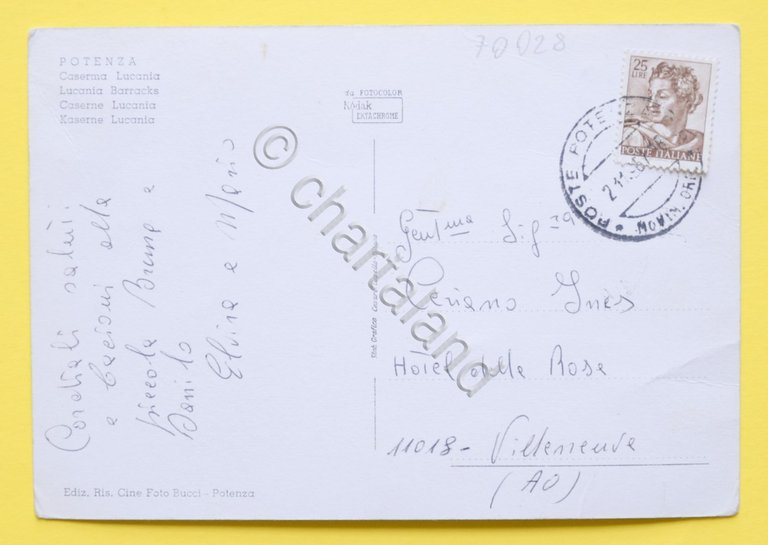 70028
POTENZA
Caserma Lucania
Lucania Barracks
Caserne Lucania
Kaserne Lucania
da FOTOCOLOR
Kodak
EKTACHROME
25
LIRE
POSTE ITALIANE
* POSTE POTE
Cordiali saluti
e bacioni alla
piccola Bruna e
Danilo
Elvira e Mario
Gent.ma Sig.ra
Ines
Hotel delle Rose
11018- Villeneuve
(AO)
Ediz. Ris. Cine Foto Bucci - Potenza
© chartaland